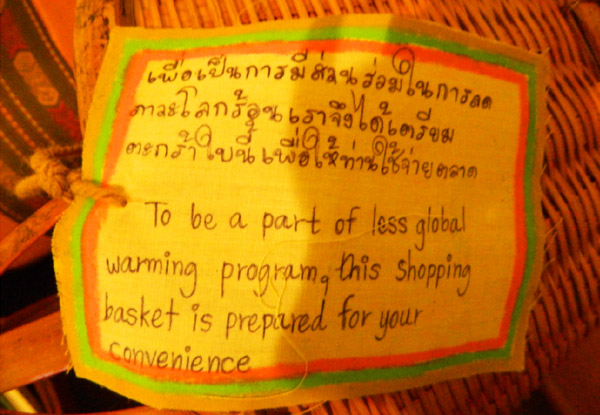 เพื่อเป็นการมีส่วนร่วมในการลด
ภาวะโลกร้อน เราจึงได้เตรียม
ตะกร้าใบนี้ เพื่อให้ท่านใช้จ่ายตลาด
To be a part of less global
warming program, this shopping
basket is prepared for your
convenience